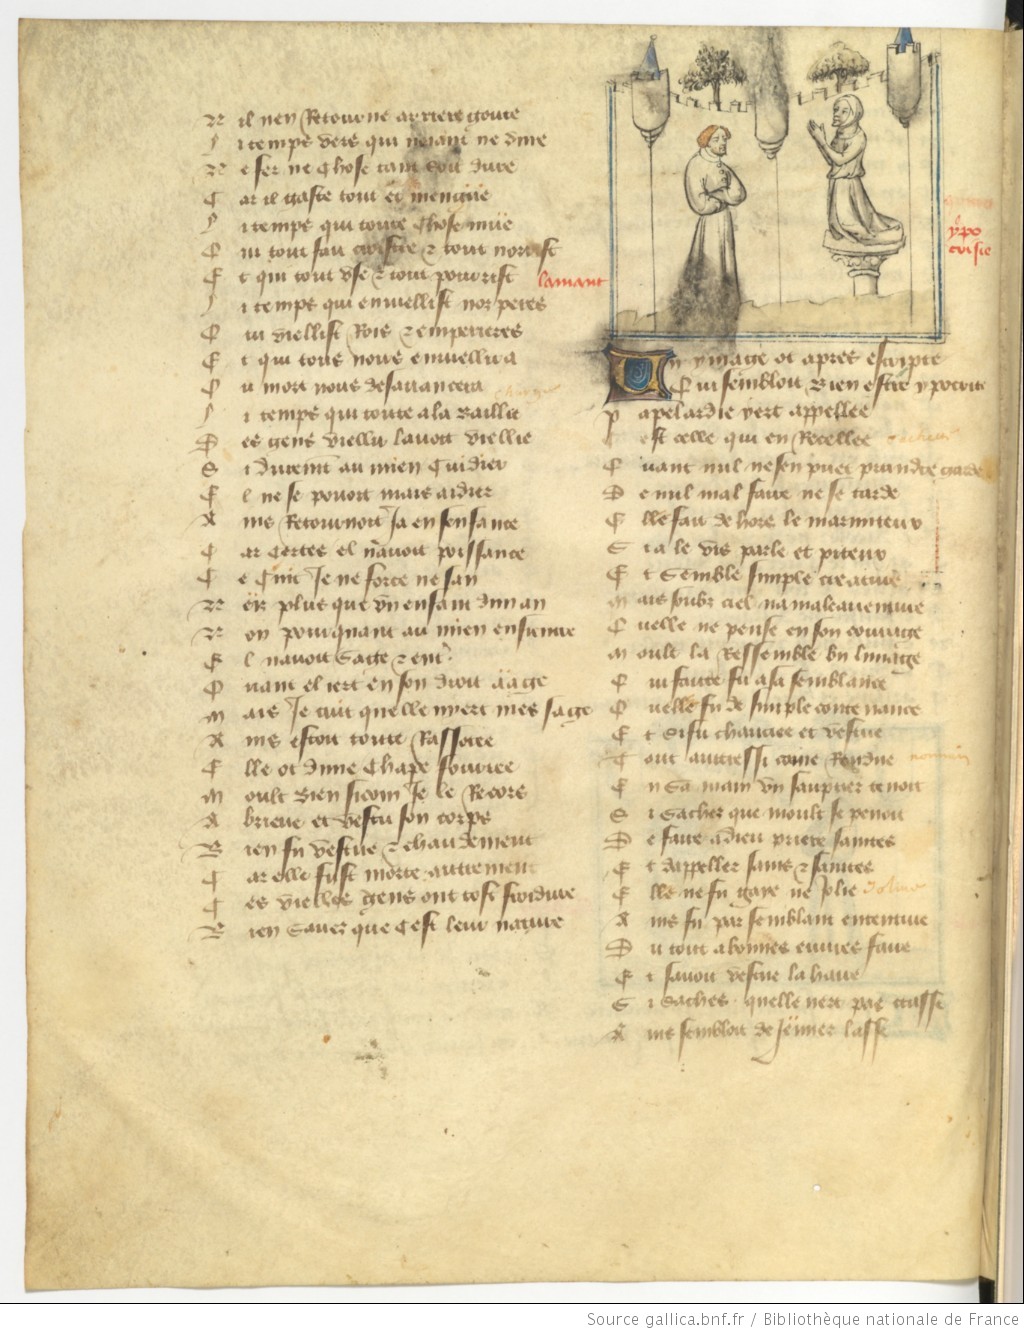 N il nen Retourne arriere goute
l i temps vers qui neiant ne dure
N e fer ne chose tant soit dure
C ar il gaste tout et mengue
l i temps qui toute chose mue
Q ui tout fait croistre & tout norrist
E t qui tout vse & tout pourrist
l i temps qui enviellist noz peres
Q ui viellist Rois & emperieres
E t qui tous nous enviellira
Q u mort nous desauancera
l i temps qui toute a la baillie
D es gens viellir lauoit viellie
S i durement au mien cuidier
E l ne se pouoit mais aidier
A ins Retournoit Ja en senfance
C ar certes el nauoit poissance
C e cuit Je ne force ne san
N e plus que vn enfant dun an
N on pourquant au mien enscient
E l nauoit sage & ent
Q uant el iert en son droit aage
M ais Je cuit quelle niert mes sage
A ins estoit toute Rassotee
E lle ot dune chape fourree
M oult bien sicom Je le Recors
A brieue et vestu son corps
B ien fu vestue & chaudement
C ar elle fust morte autrement
C es vielles gens ont tost froidure
B ien sauez que cest leur nature
lamant
ypo
crisie
Un ymage ot apres escripte
Q ui sembloit bien estre ypocrite
P apelardie yert appellee
C est celle qui en Recellee
Q uant nul ne sen puet prandre garde
D e nul mal faire ne se tarde
E lle fait dehors le marmiteux
S i a le vis parle et piteux
E t semble simple creature
M ais soubz ciel na maleauenture
Q uelle ne pense en son courage
M oult la Ressemble bn lymage
Q ui faicte fu a sa semblance
Q uelle fu de simple contenance
E t si fu chaucee et vestue
T out aussi come Rendue
E n sa main vn saupter tenoit
S i sachez que moult se penoit
D e faire a dieu prieres saintes
E t dappeller sains & saintes
E lle ne fu gaye ne Jolie
A ins fu par semblant ententiue
D u tout a bonnes euures faire
E t sauoit vestue la haire
S i sachies quelle nert pas crasse
A ins sembloit de Jeuner lasse
Source gallica.bnf.fr / Bibliothèque nationale de France